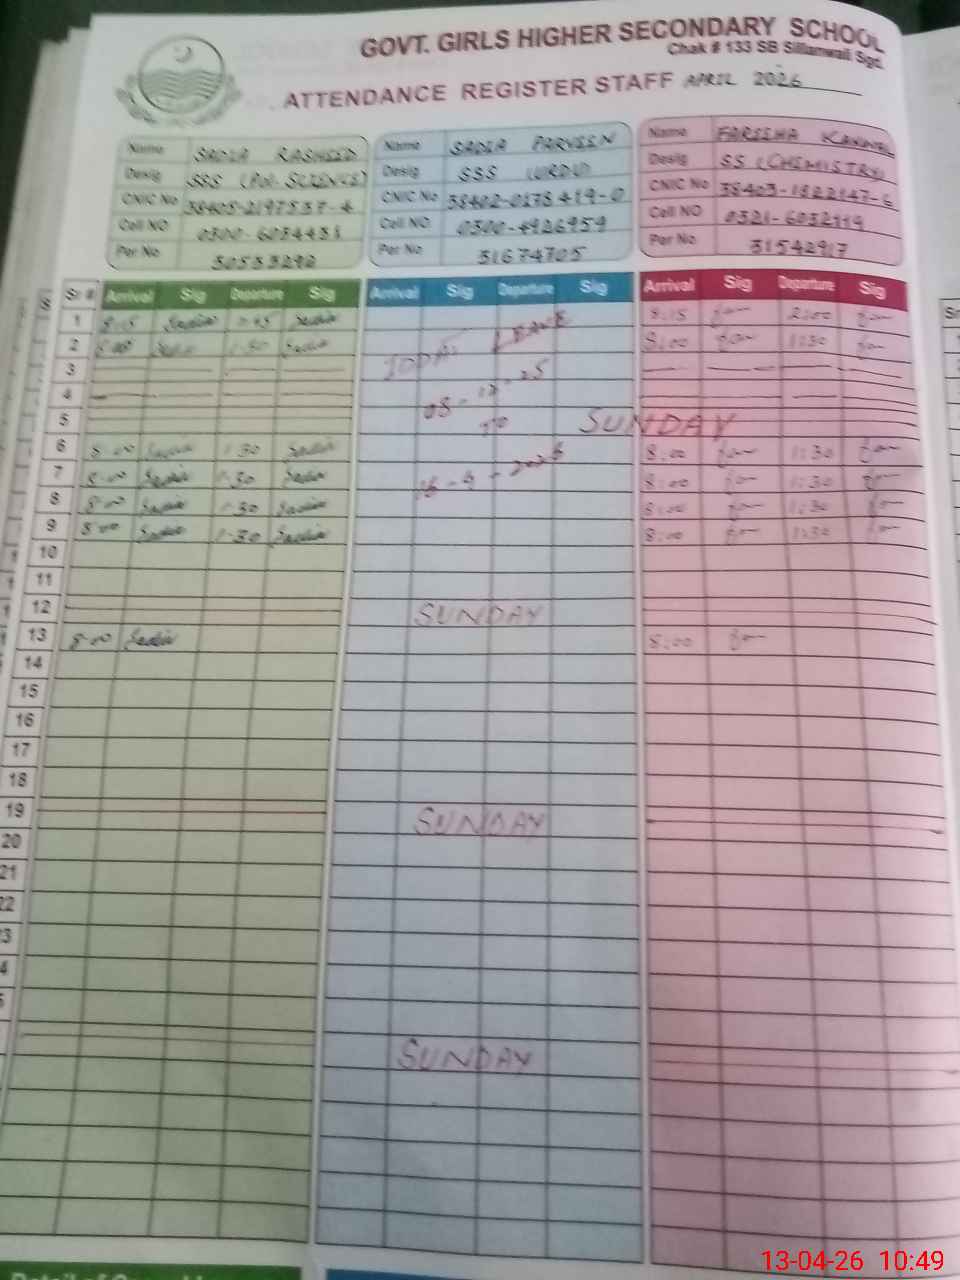 GOVT. GIRLS HIGHER SECONDARY SCHOOL
Chak # 133 SB Sillanwali Sgd.
ATTENDANCE REGISTER STAFF APRIL 2026
Name SADIA RASHEED
Desig SSS (Pol. SCIENCE)
CNIC No 38405-2197537-4
Cell NO 0300-6034438
Per No 30533292
Name SADIA PARVEEN
Desig SSS (URDU)
CNIC No 38402-0178419-0
Cell NO 0300-4926959
Per No 31674705
Name FAREEHA KANWAL
Desig SS (CHEMISTRY)
CNIC No 38403-1822147-6
Cell NO 0321-6032119
Per No 31542917
Sr # Arrival Sig Departure Sig Arrival Sig Departure Sig Arrival Sig Departure Sig
1 8:15 Sadia 1:45 Sadia 8:15 2:00
2 8:00 Sadia 1:30 Sadia LEAVE 8:00 1:30
3
4 08-12-25
5 TO SUNDAY
6 8:00 Sadia 1:30 Sadia 8:00 1:30
7 8:00 Sadia 1:30 Sadia 16-4-2026 8:00 1:30
8 8:00 Sadia 1:30 Sadia 8:00 1:30
9 8:00 Sadia 1:30 Sadia 8:00 1:30
10
11
12 SUNDAY
13 8:00 Sadia 8:00
14
15
16
17
18
19 SUNDAY
20
21
22
3
4
SUNDAY
13-04-26 10:49